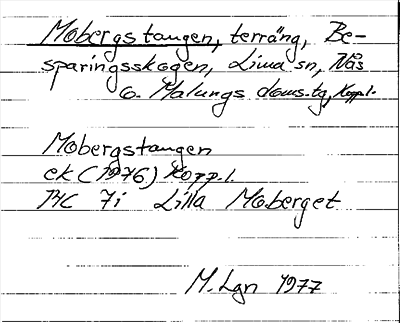 Mobergstangen, terräng, Be-
sparingsskogen, Lima sn, Nås
o. Malungs doms.tg, Koppl.
Mobergstangen
ek (1976) Kopp.l.
RK 7i Lilla Moberget
M. Lgn 1977